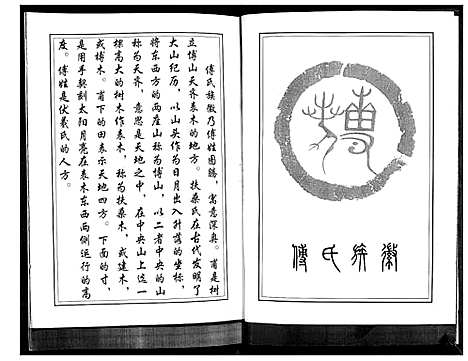 傅氏族徽乃傅姓图腾，寓意深奥。甫是树
立傅山天齐表木的地方。扶桑氏在古代发明了
大山纪历，以山头作为日月出入升落的坐标，
将东西方的两座山称为傅山，以二者中央的山
称为天齐，意思是天地之中，在中央山上选一
棵高大的树木作表木，称为扶桑木，或建木，
或榑木。甫下的田表示天地四方。下面的寸，
是用手契刻太阳月亮在表木东西两侧运行的高
度。傅姓是伏羲氏的人方。
傅氏族徽